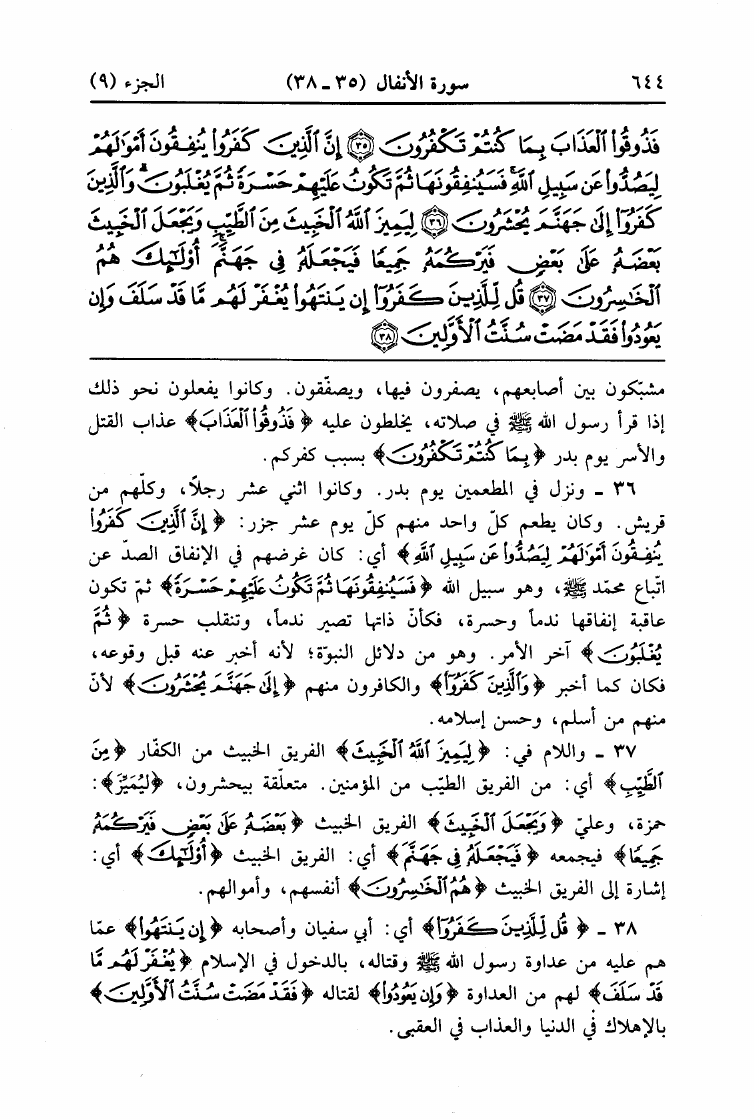 ٦٤٤ سورة الأنفال (٣٥ ـ ٣٨) الجزء (٩)
فَذُوقُوا۟ ٱلْعَذَابَ بِمَا كُنتُمْ تَكْفُرُونَ ﴿٣٥﴾ إِنَّ ٱلَّذِينَ كَفَرُوا۟ يُنفِقُونَ أَمْوَٰلَهُمْ
لِيَصُدُّوا۟ عَن سَبِيلِ ٱللَّهِ ۚ فَسَيُنفِقُونَهَا ثُمَّ تَكُونُ عَلَيْهِمْ حَسْرَةً ثُمَّ يُغْلَبُونَ ۗ وَٱلَّذِينَ
كَفَرُوٓا۟ إِلَىٰ جَهَنَّمَ يُحْشَرُونَ ﴿٣٦﴾ لِيَمِيزَ ٱللَّهُ ٱلْخَبِيثَ مِنَ ٱلطَّيِّبِ وَيَجْعَلَ ٱلْخَبِيثَ
بَعْضَهُۥ عَلَىٰ بَعْضٍ فَيَرْكُمَهُۥ جَمِيعًا فَيَجْعَلَهُۥ فِى جَهَنَّمَ ۚ أُو۟لَٰٓئِكَ هُمُ
ٱلْخَٰسِرُونَ ﴿٣٧﴾ قُل لِّلَّذِينَ كَفَرُوٓا۟ إِن يَنتَهُوا۟ يُغْفَرْ لَهُم مَّا قَدْ سَلَفَ وَإِن
يَعُودُوا۟ فَقَدْ مَضَتْ سُنَّتُ ٱلْأَوَّلِينَ ﴿٣٨﴾
مشبّكون بين أصابعهم، يصفرون فيها، ويصفّقون. وكانوا يفعلون نحو ذلك
إذا قرأ رسول الله ﷺ في صلاته، يخلطون عليه ﴿فَذُوقُوا۟ ٱلْعَذَابَ﴾ عذاب القتل
والأسر يوم بدر ﴿بِمَا كُنتُمْ تَكْفُرُونَ﴾ بسبب كفركم.
٣٦ ـ ونزل في المطعمين يوم بدر. وكانوا اثني عشر رجلاً، وكلّهم من
قريش. وكان يطعم كلّ واحد منهم كلّ يوم عشر جزر: ﴿إِنَّ ٱلَّذِينَ كَفَرُوا۟
يُنفِقُونَ أَمْوَٰلَهُمْ لِيَصُدُّوا۟ عَن سَبِيلِ ٱللَّهِ﴾ أي: كان غرضهم في الإنفاق الصدّ عن
اتباع محمّد ﷺ، وهو سبيل الله ﴿فَسَيُنفِقُونَهَا ثُمَّ تَكُونُ عَلَيْهِمْ حَسْرَةً﴾ ثمّ تكون
عاقبة إنفاقها ندماً وحسرة، فكأنّ ذاتها تصير ندماً، وتنقلب حسرة ﴿ثُمَّ
يُغْلَبُونَ﴾ آخر الأمر. وهو من دلائل النبوّة؛ لأنه أخبر عنه قبل وقوعه،
فكان كما أخبر ﴿وَٱلَّذِينَ كَفَرُوٓا۟﴾ والكافرون منهم ﴿إِلَىٰ جَهَنَّمَ يُحْشَرُونَ﴾ لأنّ
منهم من أسلم، وحسن إسلامه.
٣٧ ـ واللام في: ﴿لِيَمِيزَ ٱللَّهُ ٱلْخَبِيثَ﴾ الفريق الخبيث من الكفّار ﴿مِنَ
ٱلطَّيِّبِ﴾ أي: من الفريق الطيّب من المؤمنين. متعلّقة بيحشرون، ﴿لِيُمَيِّزَ﴾:
حمزة، وعليّ ﴿وَيَجْعَلَ ٱلْخَبِيثَ﴾ الفريق الخبيث ﴿بَعْضَهُۥ عَلَىٰ بَعْضٍ فَيَرْكُمَهُۥ
جَمِيعًا﴾ فيجمعه ﴿فَيَجْعَلَهُۥ فِى جَهَنَّمَ﴾ أي: الفريق الخبيث ﴿أُو۟لَٰٓئِكَ﴾ أي:
إشارة إلى الفريق الخبيث ﴿هُمُ ٱلْخَٰسِرُونَ﴾ أنفسهم، وأموالهم.
٣٨ ـ ﴿قُل لِّلَّذِينَ كَفَرُوٓا۟﴾ أي: أبي سفيان وأصحابه ﴿إِن يَنتَهُوا۟﴾ عمّا
هم عليه من عداوة رسول الله ﷺ وقتاله، بالدخول في الإسلام ﴿يُغْفَرْ لَهُم مَّا
قَدْ سَلَفَ﴾ لهم من العداوة ﴿وَإِن يَعُودُوا۟﴾ لقتاله ﴿فَقَدْ مَضَتْ سُنَّتُ ٱلْأَوَّلِينَ﴾
بالإهلاك في الدنيا والعذاب في العقبى.